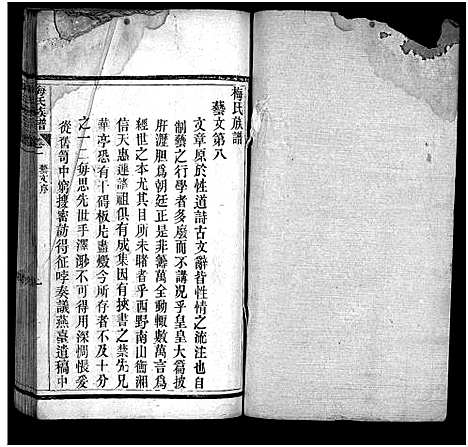 梅氏族譜
藝文第八
文章原於性道詩古文辭皆性情之流注也自
制藝之行學者多廢而不講況乎皇皇大篇披
肝瀝胆為朝廷正是非籌萬全動輒數萬言為
經世之本尤其目所未睹者乎西野南山衡湘
信天惠連諸祖俱有成集因有挾書之禁先兄
華亭恐有干碍板片盡燬今所存者不及十分
之一二每思先世手澤渺不可得用深惆悵爰
從舊笥中窮搜密訪得征哱奏議燕臺遺稿中
梅氏族譜
卷一
藝文序